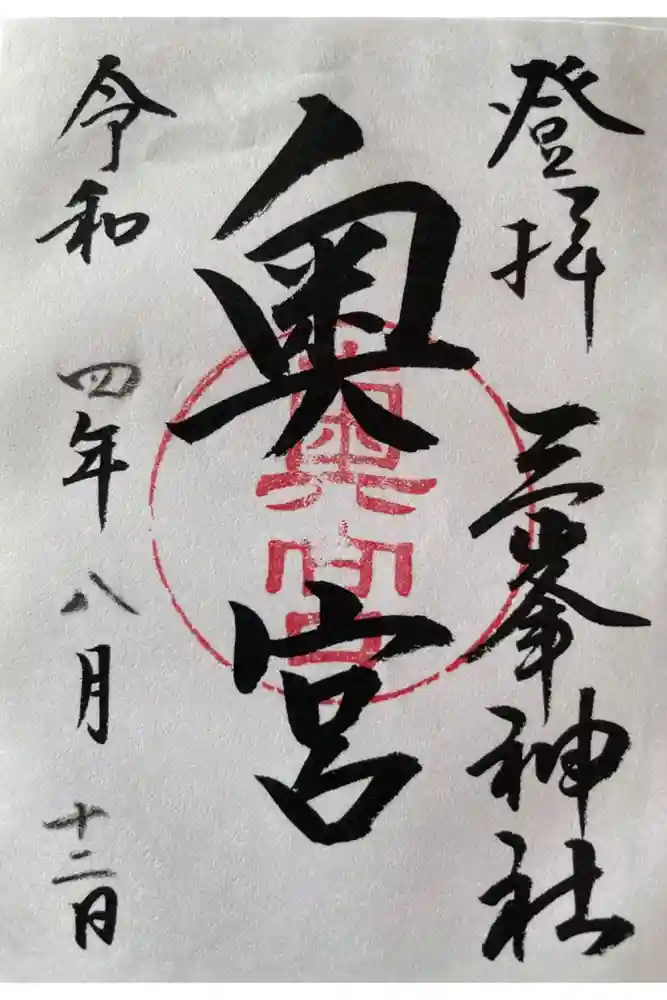 登拝 三峯神社
奥宮
奥宮
令和四年八月十二日